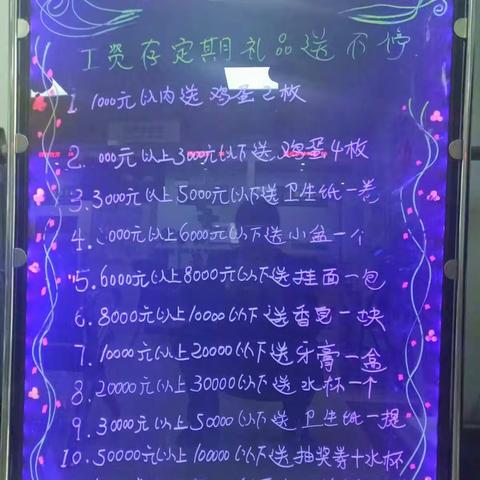 工资存定期礼品送不停
1. 1000元以内送鸡蛋2枚
2. 000元以上3000元以下送鸡蛋4枚
3. 3000元以上5000元以下送卫生纸一卷
4. 000元以上6000元以下送小盆一个
5. 6000元以上8000元以下送挂面一包
6. 8000元以上10000以下送香皂一块
7. 10000元以上20000以下送牙膏一盒
8. 20000元以上30000以下送水杯一个
9. 30000元以上50000以下送卫生纸一提
10. 50000元以上100000以下送抽奖券+水杯